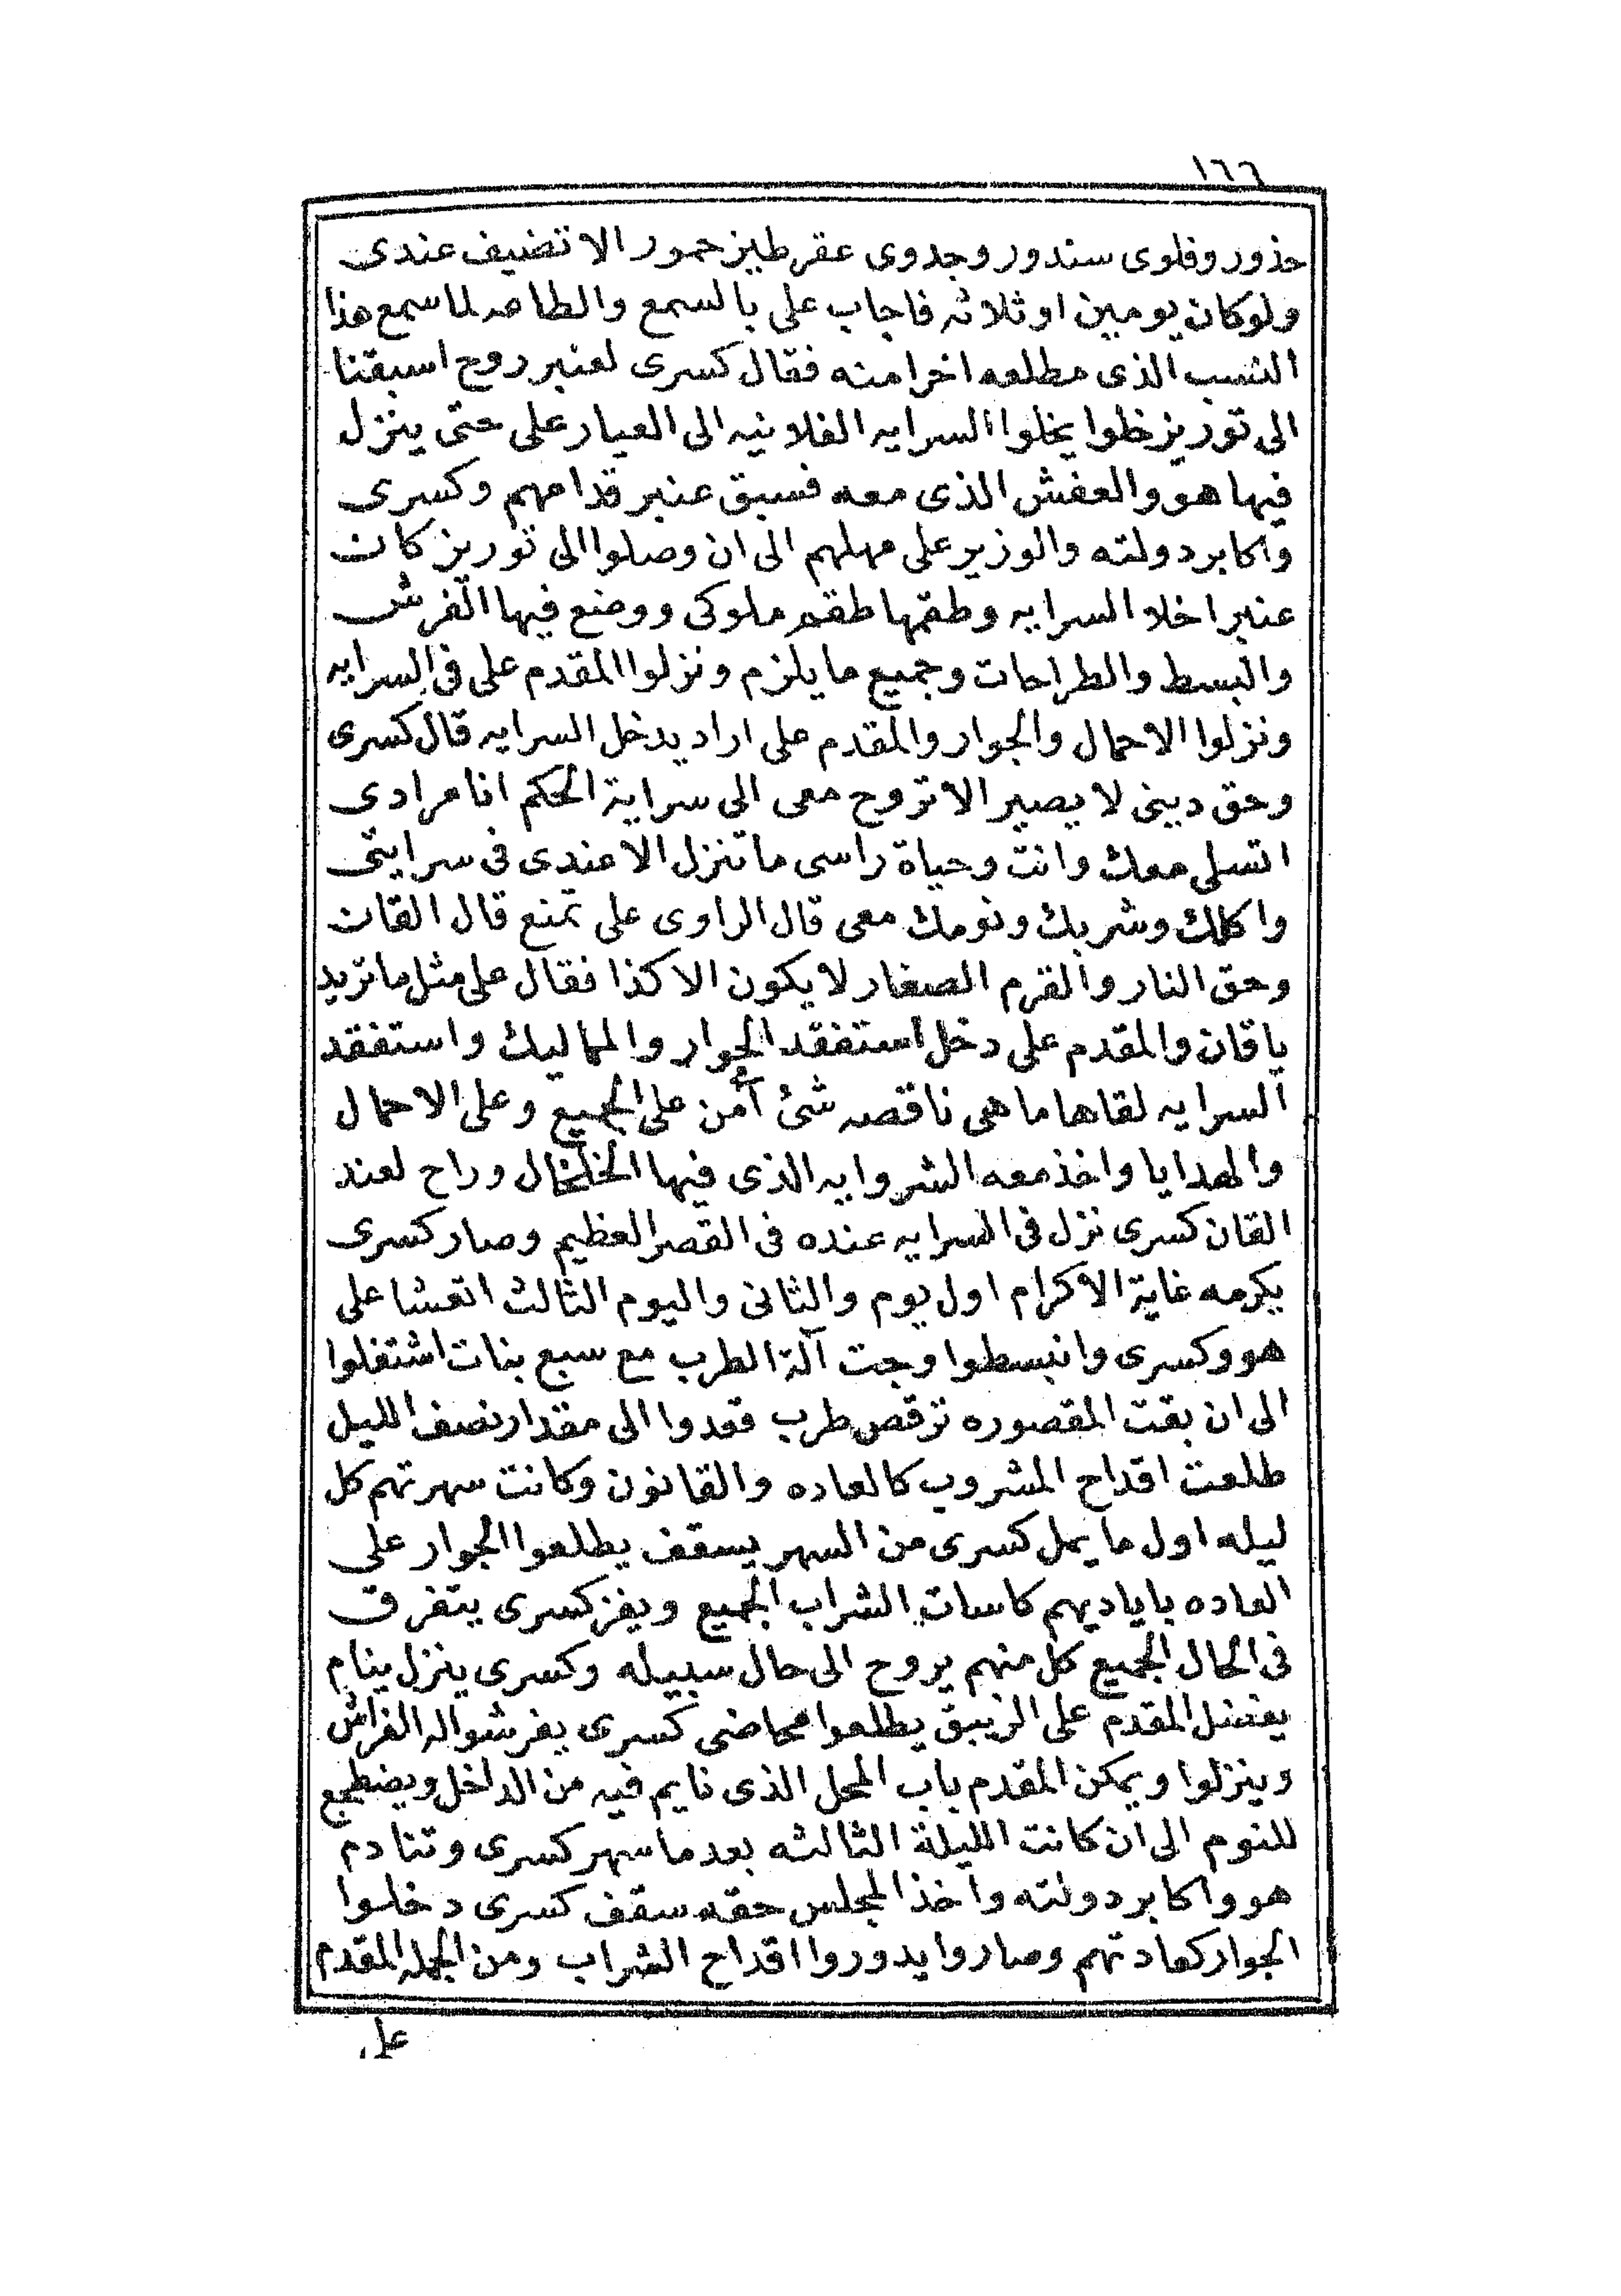 ١٦٦
حذور وفلوى سندور وجدوى عقرطيز حمور الا تضيف عندى
ولوكان يومين او ثلاثه فاجاب على بالسمع والطاعه لما سمع هذا
النسب الذى مطلعه اخرا منه فقال كسرى لعنبر روح اسبقنا
الى توريز خلوا يخلوا السرايه الفلانيه الى العيار على حتى ينزل
فيها هو والعفش الذى معه فسبق عنبر قدامهم وكسرى
واكابر دولته والوزير على مهلهم الى ان وصلوا الى توريز كان
عنبر اخلا السرايه وطقمها طقم ملوكى ووضع فيها الفرش
والبسط والطراحات وجميع ما يلزم ونزلوا المقدم على فى السرايه
ونزلوا الاحمال والجوار والمقدم على اراد يدخل السرايه قال كسرى
وحق دينى لا يصير الا تروح معى الى سراية الحكم انا مرادى
اتسلى معك وانت وحياة راسى ما تنزل الا عندى فى سرايتى
واكلك وشربك ونومك معى قال الراوى على تمنع قال القان
وحق النار والقرم الصغار لا يكون الا كذا فقال على مثل ما تريد
يا قان والمقدم على دخل استفقد الجوار والمماليك واستفقد
السرايه لقاها ما هى ناقصه شئ أمن على الجميع وعلى الاحمال
والهدايا واخذ معه الشروايه الذى فيها الخلخال وراح لعند
القان كسرى نزل فى السرايه عنده فى القصر العظيم وصار كسرى
يكرمه غاية الاكرام اول يوم والثانى واليوم الثالث اتعشا على
هو وكسرى وانبسطوا وجت آلة الطرب مع سبع بنات اشتغلوا
الى ان بقت المقصوره ترقص طرب قعدوا الى مقدار نصف الليل
طلعت اقداح المشروب كالعاده والقانون وكانت سهرتهم كل
ليله اول ما يمل كسرى من السهر يسقف يطلعوا الجوار على
العاده باياديهم كاسات الشراب الجميع ويفز كسرى يتفرق
فى الحال الجميع كل منهم يروح الى حال سبيله وكسرى ينزل ينام
يفضل المقدم على الزيبق يطلعوا محاضى كسرى يفرشوا له الفراش
وينزلوا ويمكن المقدم باب المحل الذى نايم فيه من الداخل ويضطجع
للنوم الى ان كانت الليلة الثالثه بعد ما سهر كسرى وتنادم
هو واكابر دولته واخذ المجلس حقه سقف كسرى دخلوا
الجوار كعادتهم وصاروا يدوروا اقداح الشراب ومن الجمله المقدم
على